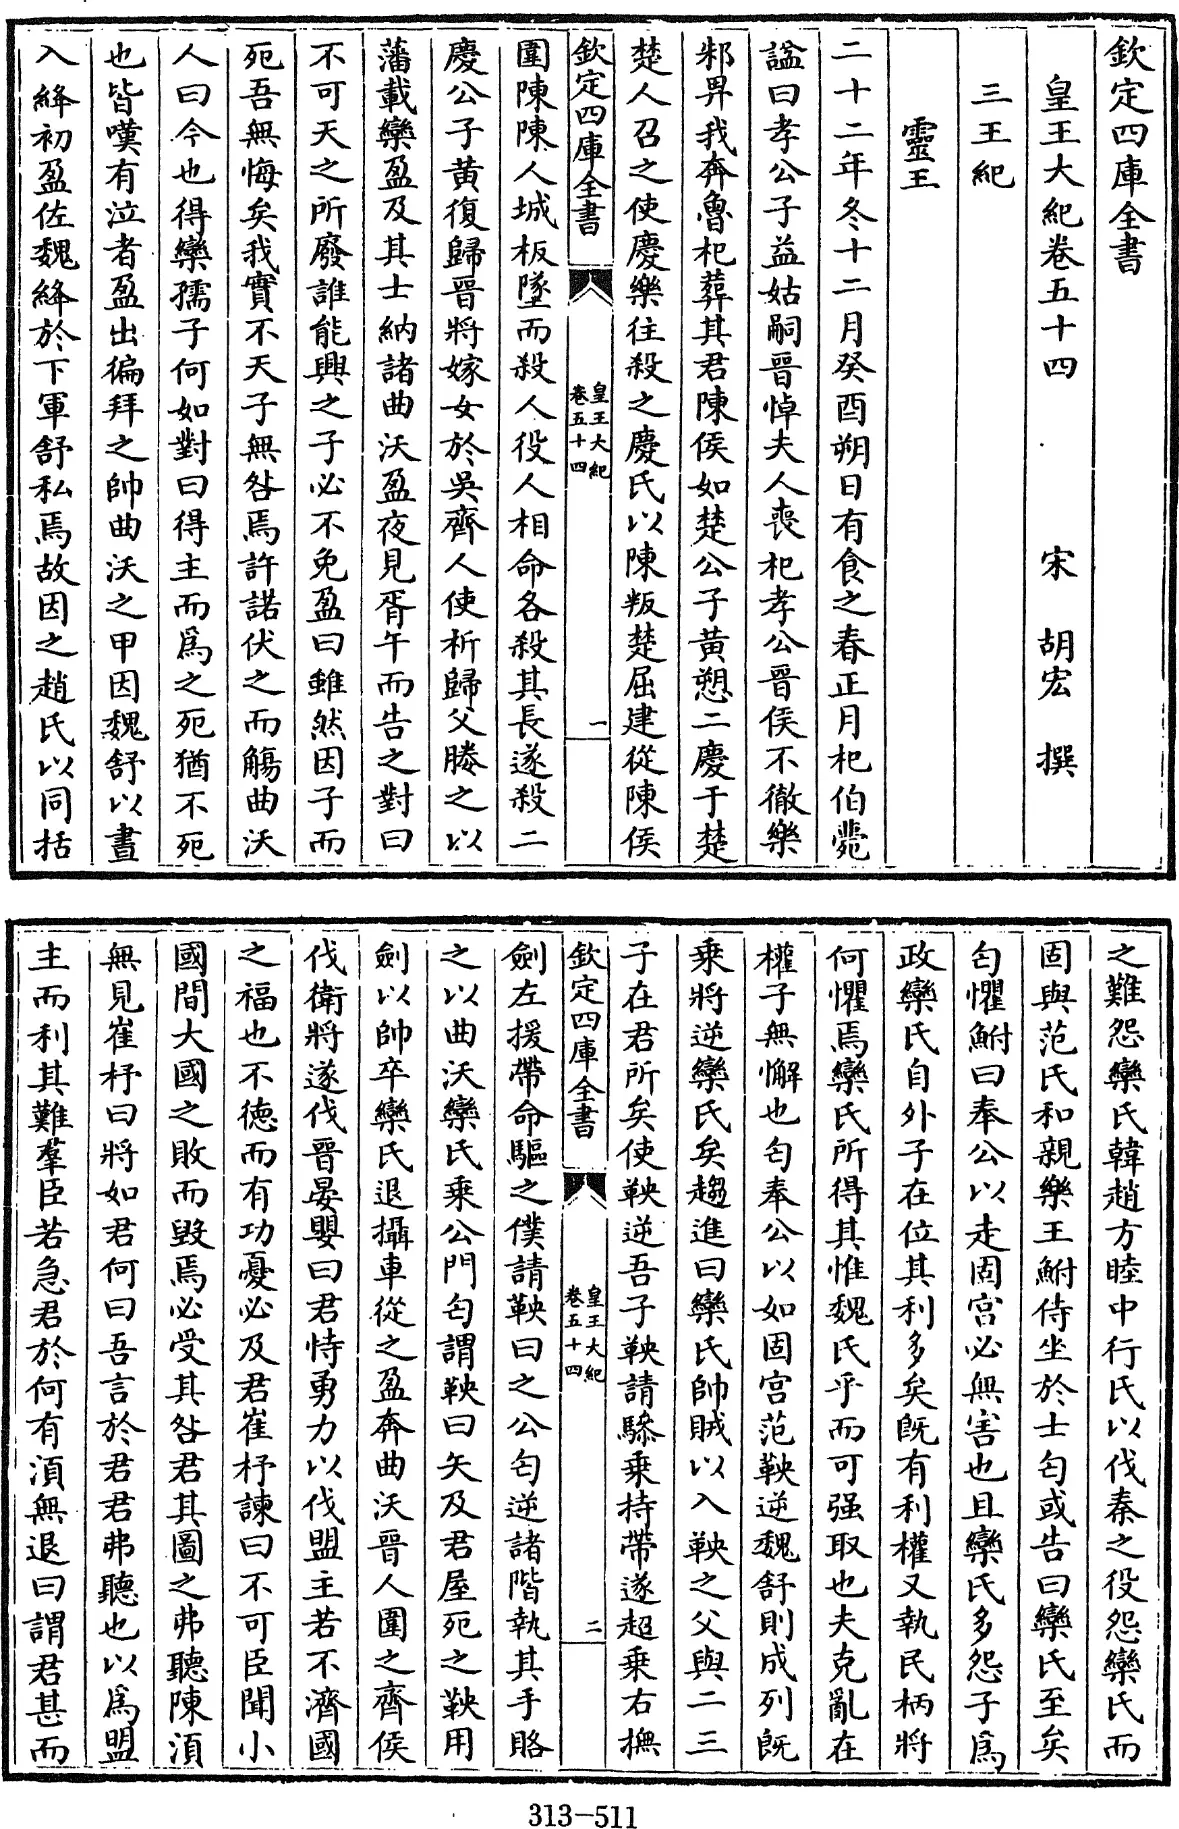 欽定四庫全書
皇王大紀卷五十四　宋　胡宏　撰
三王紀
靈王
二十二年冬十二月癸酉朔日有食之春正月杞伯薨
諡曰孝公子益姑嗣晉悼夫人喪杞孝公晉侯不徹樂
邾畀我奔魯杞葬其君陳侯如楚公子黃愬二慶于楚
楚人召之使慶樂往殺之慶氏以陳叛楚屈建從陳侯
欽定四庫全書
皇王大紀
卷五十四
一
圍陳陳人城板墜而殺人役人相命各殺其長遂殺二
慶公子黃復歸晉將嫁女於吳齊人使析歸父媵之以
藩載欒盈及其士納諸曲沃盈夜見胥午而告之對曰
不可天之所廢誰能興之子必不免盈曰雖然因子而
死吾無悔矣我實不天子無咎焉許諾伏之而觴曲沃
人曰今也得欒孺子何如對曰得主而爲之死猶不死
也皆嘆有泣者盈出徧拜之帥曲沃之甲因魏舒以晝
入絳初盈佐魏絳於下軍舒私焉故因之趙氏以同括
之難怨欒氏韓趙方睦中行氏以伐秦之役怨欒氏而
固與范氏和親樂王鮒侍坐於士匄或告曰欒氏至矣
匄懼鮒曰奉公以走固宮必無害也且欒氏多怨子爲
政欒氏自外子在位其利多矣既有利權又執民柄將
何懼焉欒氏所得其惟魏氏乎而可强取也夫克亂在
權子無懈也匄奉公以如固宮范鞅逆魏舒則成列既
乘將逆欒氏矣趨進曰欒氏帥賊以入鞅之父與二三
子在君所矣使鞅逆吾子鞅請驂乘持帶遂超乘右撫
欽定四庫全書
皇王大紀
卷五十四
二
劍左援帶命驅之僕請鞅曰之公匄逆諸階執其手賂
之以曲沃欒氏乘公門匄謂鞅曰矢及君屋死之鞅用
劍以帥卒欒氏退攝車從之盈奔曲沃晉人圍之齊侯
伐衛將遂伐晉晏嬰曰君恃勇力以伐盟主若不濟國
之福也不德而有功憂必及君崔杼諫曰不可臣聞小
國間大國之敗而毀焉必受其咎君其圖之弗聽陳湏
無見崔杼曰將如君何曰吾言於君君弗聽也以爲盟
主而利其難羣臣若急君於何有湏無退曰謂君甚而
313-511